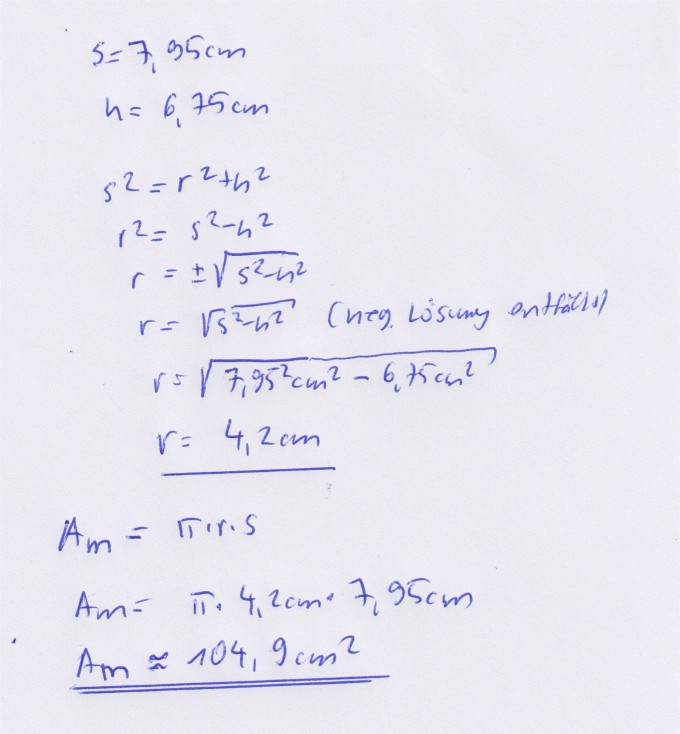 s=7,95cm
h= 6,75cm
s²=r²+h²
r²= s²-h²
r = ±√s²-h²
r= √s²-h² (neg. Lösung entfällt)
r= √7,95²cm² - 6,75cm²
r= 4,2cm
Am = π·r·s
Am= π· 4,2cm· 7,95cm
Am ≈ 104,9cm²